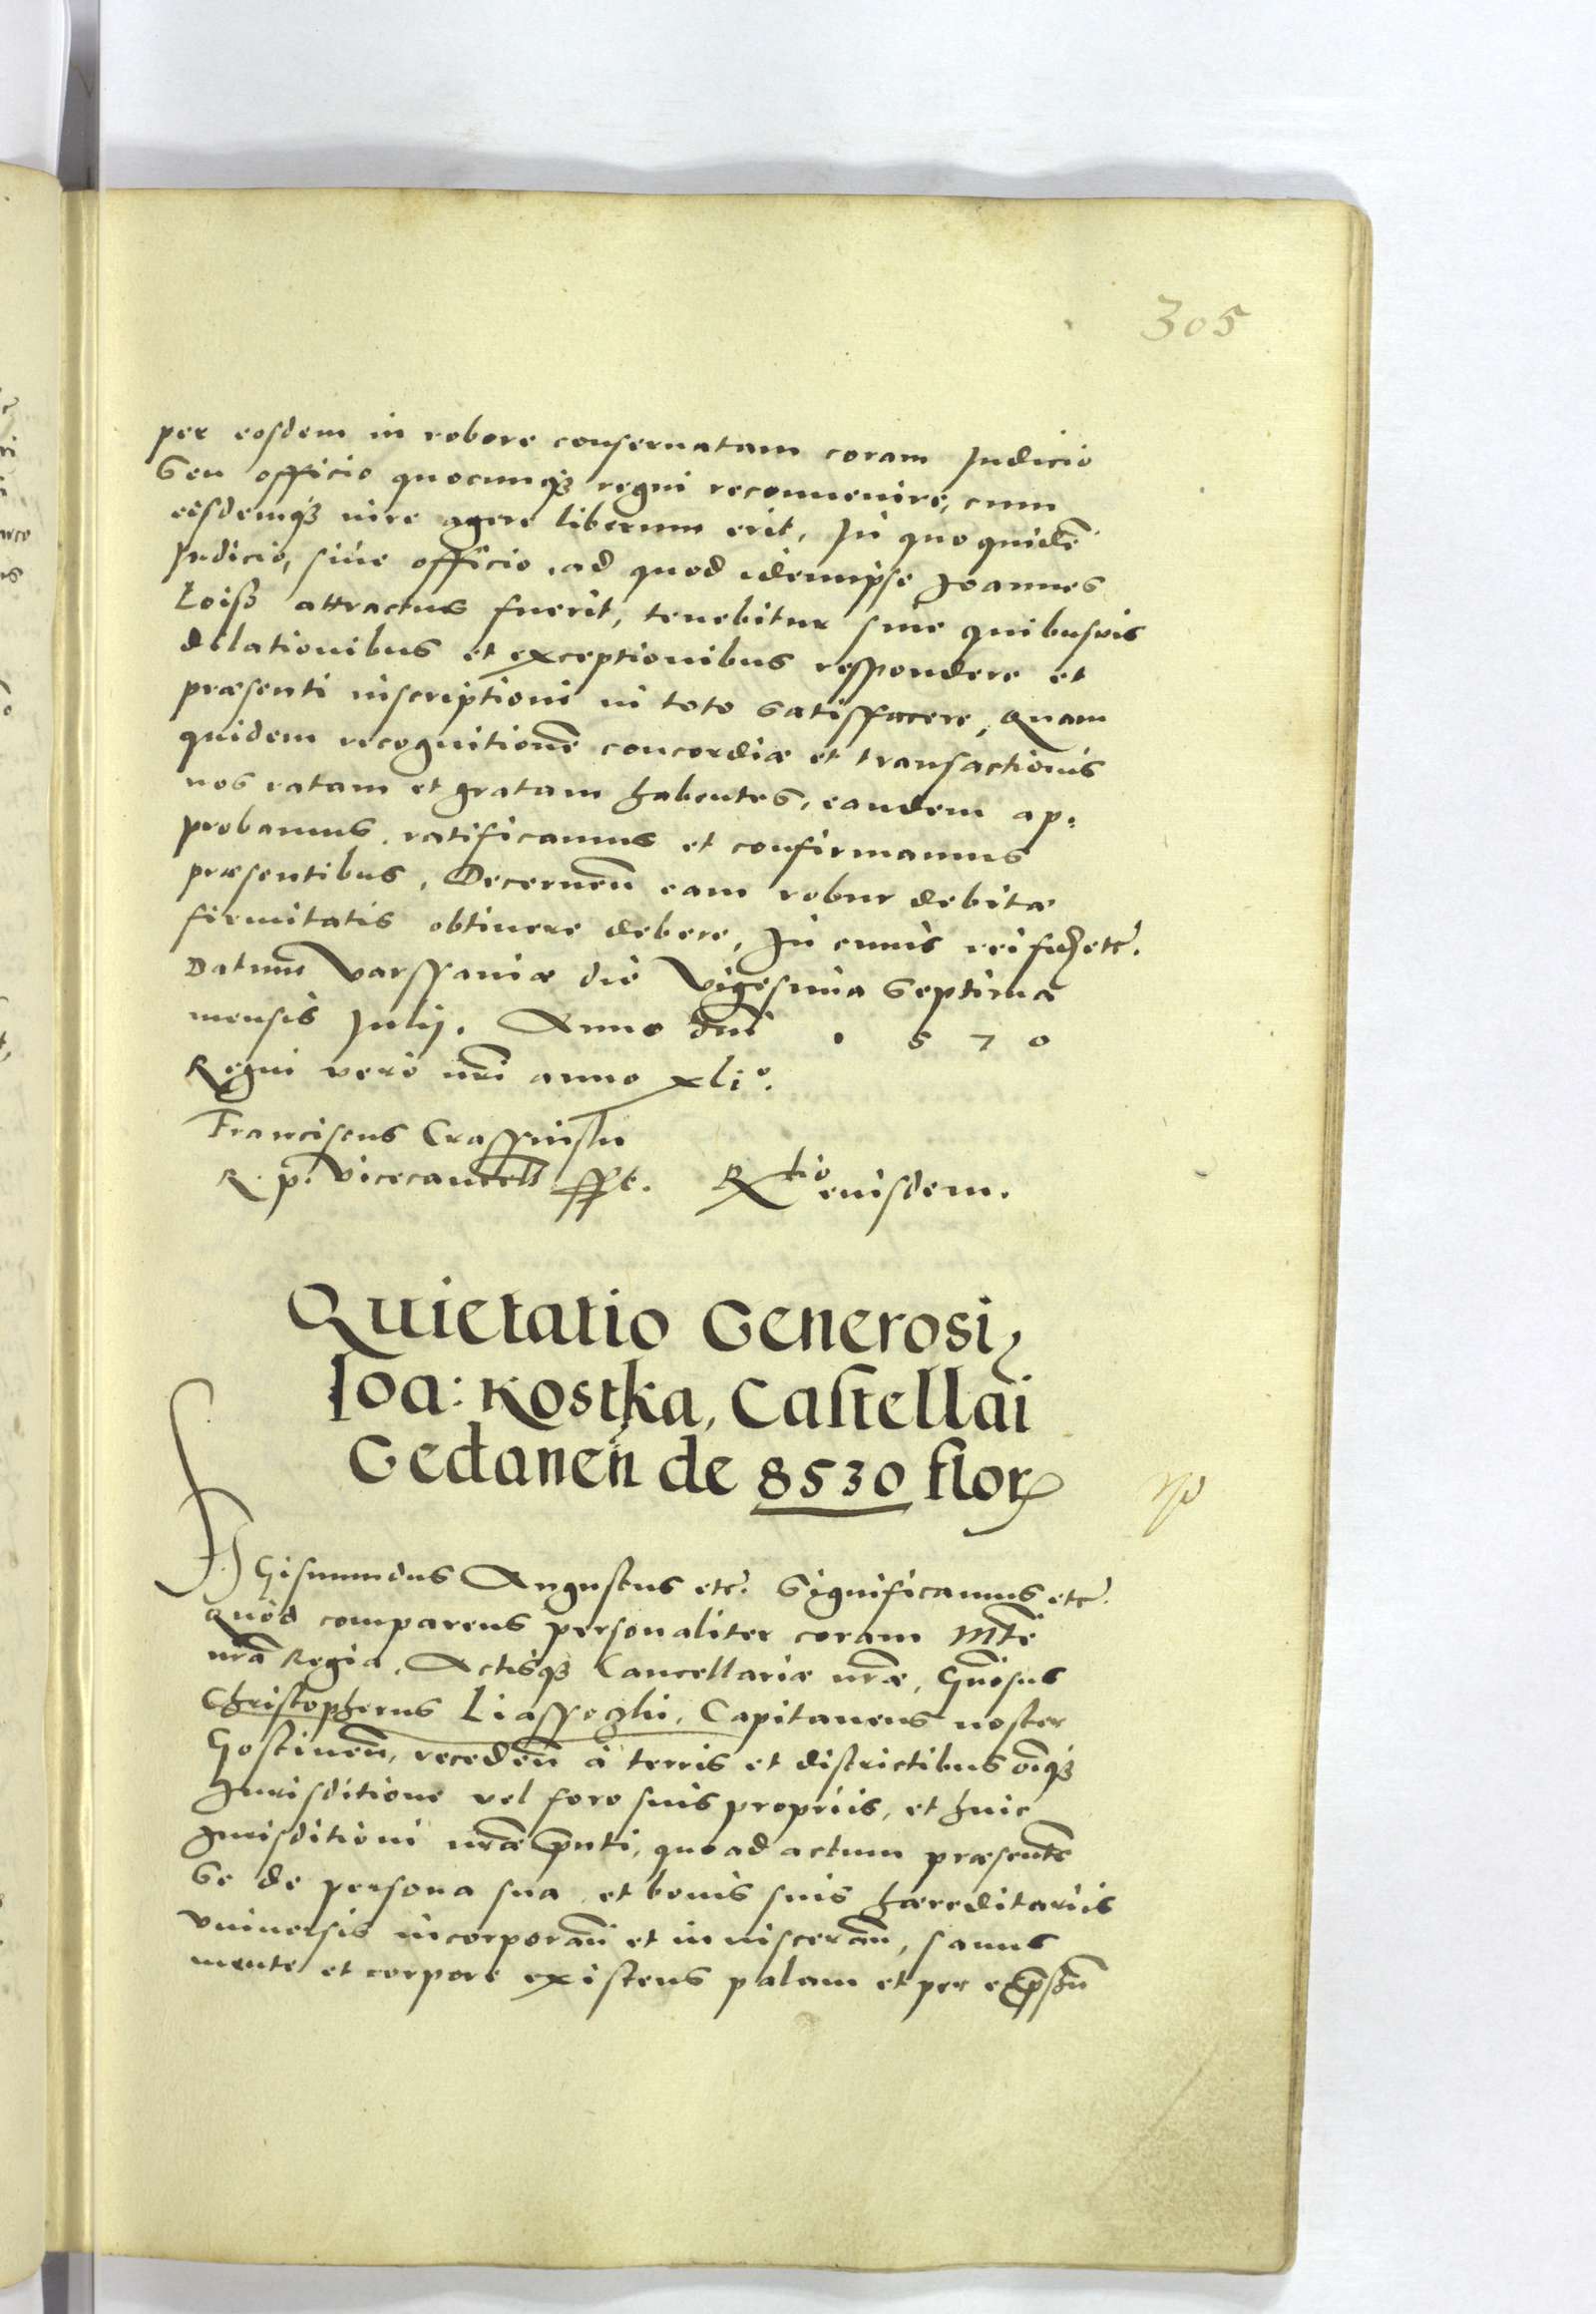 305
per eosdem in robore conseruatam coram Judicio
Seu officio quocunqꝫ regni reconuenire, cum
eisdemqꝫ iure agere liberum erit, In quo quidē
Judicio, siue officio, ad quod idemipse Joannes
Loiss attractus fuerit, tenebitur sine quibusuis
dilationibus et exceptionibus respondere et
præsenti inscriptioni in toto satisfacere, Quam
quidem recognitionē concordiæ et transactionis
nos ratam et gratam habentes, eandem ap:
probamus, ratificamus et confirmamus
præsentibus, Decernen̄ eam robur debitæ
firmitatis obtinere debere, In cuius rei fidē etc.
Datum Varssauiæ die Vigesima Septima
mensis Julij. Anno dn̄i 1570
Regni vero nr̄i anno xlio.
Franciscus Crassinski
R. p. Vicecancell̄ sst. Rtio eiusdem.
Quietatio Generosi
Ioa: Kostka, Castellāi
Gedanen̄ de 8530 flor
Sigismundus Augustus etc. Significamus etc.
Quòd comparens personaliter coram Mtē
nrā Regia, Actisqꝫ Cancellariæ nrǣ, Gn̄osus
Christopherus Liassoczki, Capitaneus noster
Gostinen̄, receden̄ à terris et districtibus oīqꝫ
Jurisditione vel foro suis proprijs, et huic
Jurisditioni nrǣ pn̄ti, quo ad actum præsentē
Se de persona sua et bonis suis hæreditarijs
Vniuersis incorporan̄ et inuisceran̄, sanus
mente et corpore existens palam et per expssū